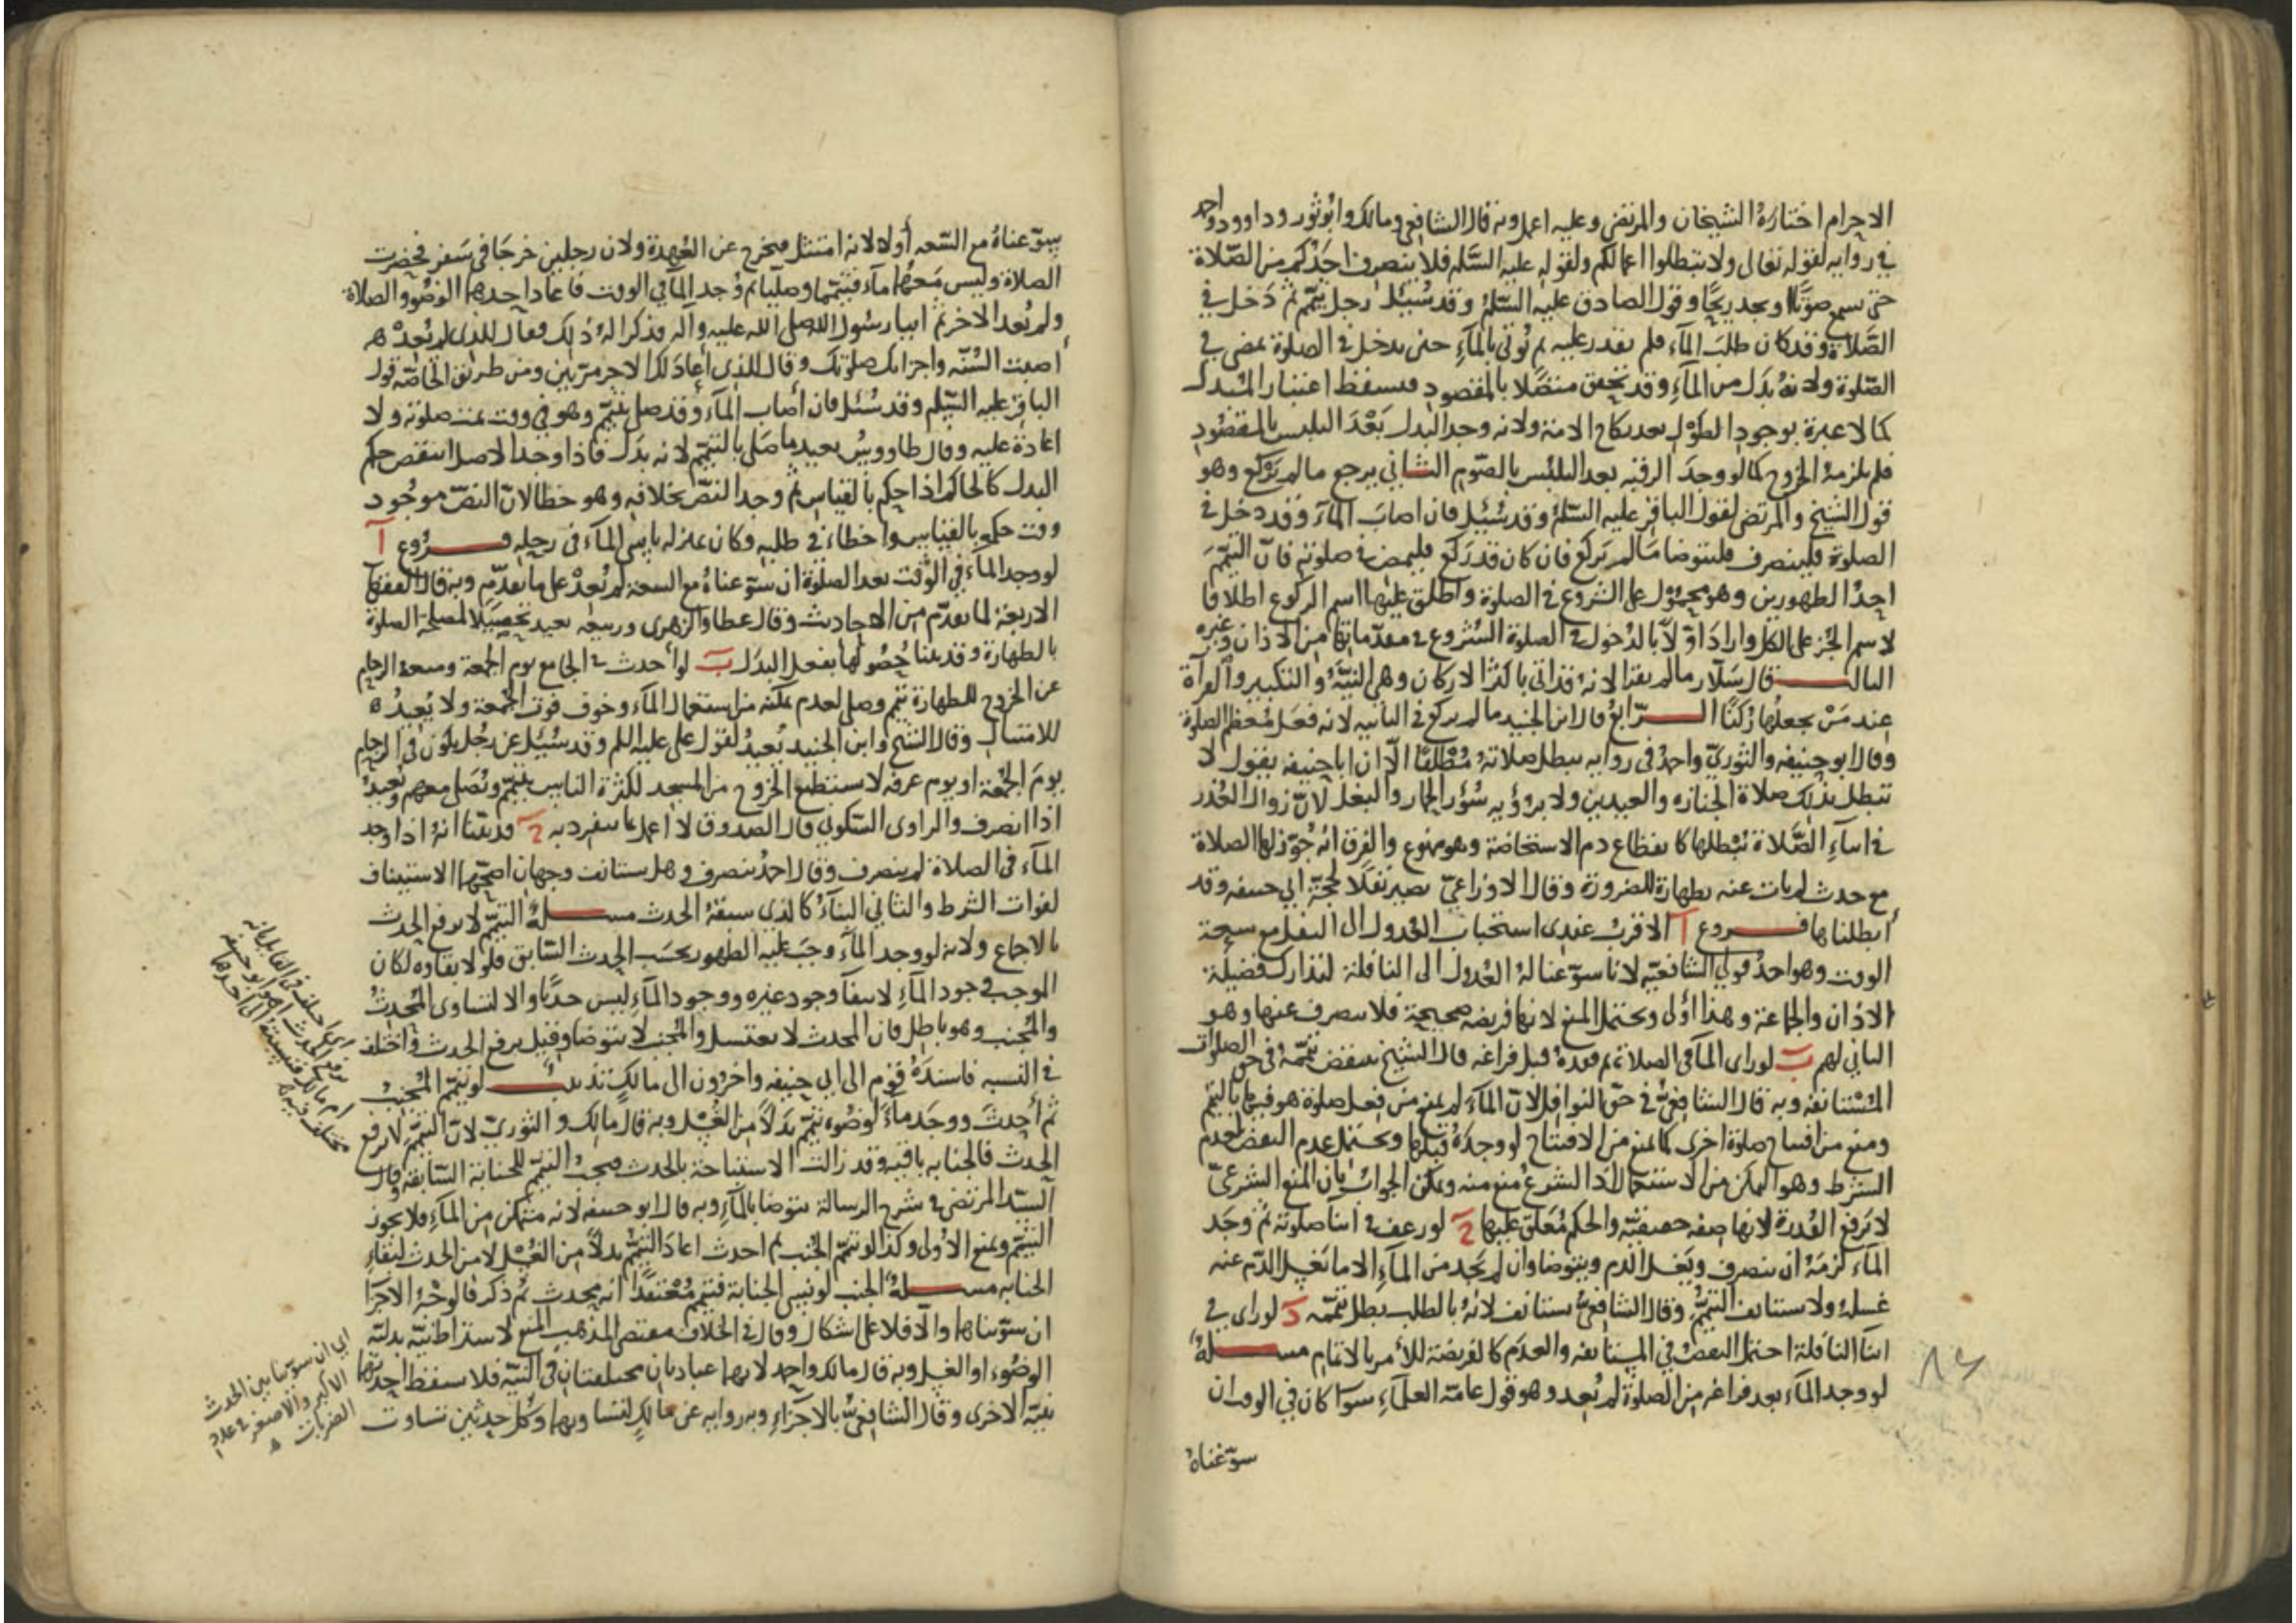 الاحرام اختاره الشيخان والمرتضى وعليه اعمل وبه قال الشافعي ومالك وابو ثور وداوود واحمد
في رواية لقوله تعالى ولا تبطلوا اعمالكم ولقوله عليه السلم فلا ينصرف احدكم من الصّلاة
حتى يسمع صوتًا او يجد ريحًا وقول الصادق عليه السّلم وقد سُئِل رجل تيمّم ثم دَخل في
الصّلاة وقد كان طلبَ المآء فلم يقدر عليه ثم يُؤتى بالمآءِ حتى يدخل في الصلوة يمضي في
الصّلوة ولانهُ بدَل من المآءِ وقد تحقق متصلا بالمقصود فيسقط اعتبار المبدل
كما لا عبرة بوجود الطَوْل بعد نكاح الامة ولانه وجد المبدل بَعْدَ التلبس بالمقصُود
فلم يلزمهُ الخروج كما لو وجدَ الرقبه بعد التلبّس بالصّوم الثاني يرجع ما لم يَرْكع وهو
قول الشيخ والمرتضى لقول الباقر عليه السّلم وقد سُئِل فان اصابَ المآء وقد دخل في
الصلوة فلينصرف فليتوضا مَا لم يَركع فان كان قد رَكع فليمض في صلوته فانّ التيمّمَ
احدُ الطهورين وهو محمُول على الشروع في الصلوة واطلق عليها اسم الركوع اطلاقا
لاسم الجُز على الكل واراد اوّلًا بالدُخول في الصلوة الشروع في مقدّماتها من الاذان وغيره
الثالث قال سَلّار ما لم يقرا لانه قد اتى باكثر الاركان وهي النيّة والتكبير والقرآة
عند مَنْ يجعلها رُكنًا الرّابع قال ابن الجنيد ما لم يركع في الثانيه لانه فعَل مُعظم الصلوة
وقال ابو حنيفه والثوريّ واحمدُ في روايه تبطل صلاتهُ مُطلقًا الّا ان ابا حنيفه يقول لا
تبطل بذلك صلاة الجنازه والعيدين ولا برؤيه سُؤر الحمار والبغل لانّ زوال العُذر
في اثنآءِ الصَّلاة تُبْطلها كانقطاع دم الاستحاضة وهو ممنوع والفرق انه جُوّز لها الصلاة
مع حدث لم يات عنه بطهارة للضرورة وقال الاوزاعيّ يصير نفلًا لحجّة ابي حنيفه وقد
ابطلناها فروع آ الاقربُ عندي استحبابُ العُدول الى النفل مع سعة
الوقت وهو احدُ قولي الشافعيّه لانا سوّغنا لهُ العُدول الى النافلة لتدارك فضيلة
الاذان والجماعة وهذا اَوْلى ويحتمل المنع لانها فريضه صحيحة فلا ينصرف عنها وهو
الثاني لهم ب لو راى المآ في الصلاة ثم فقدهُ قبل فراغه قال الشيخ ينتقض تيمّمهُ في حق الصلوات
المُسْتانفه وبه قال الشافعيّ في حقّ النوافل لانّ المآءَ لم يمنع من فعل صلوة هو فيها بالتيمم
ومنع من افتتاح صلوة اخرى كالمنع من الافتتاح لو وجدهُ قبلها ويحتمل عدم النقض لعدم
الشرط وهو التمكن من الاستعمال لانّ الشرعَ منع منه ويمكن الجواب بان المنع الشرعيّ
لا يَرفع القُدرة لانها صِفه حقيقيّه والحكم مُعَلّق عليها ج لو رعف في اثنآ صلوته ثم وجَد
المآءَ لزمَهُ ان ينصرف ويَغسل الدم ويتوضا وان لم يَجد من المآءِ الا ما يَغسل الدّم عنه
غسلهُ ولا يستانف التيمّم وقال الشافعيّ يستانف لانهُ بالطلب بطل تيمّمه د لو راى في
اثنآ النافلة احتمل النقض في المستانفه والعدم كالفريضة للأمر بالاتمام مسـلة
لو وجد المآء بعد فراغه من الصلوة لم يُعِد وهو قول عامّه العلمآءِ سوآ كان في الوقت ان
سوّغناهُ
٨٢
سوّغناهُ مع السّعه أو لا لانه امتثل فيخرج عن العُهدة ولان رجلين خرجَا في سَفر فحضرت
الصلاة وليس مَعَهُما مآء فتيمّما وصلّيا ثم وُجد المآ في الوقت فاعاد احدهما الوضُوءَ والصلاة
ولم يُعد الاخر ثم اتيا رسُول الله صلى الله عليه واله وذكرا له ذلك فقال للذي لم يُعِدْ
أصبت السُنّه واجزاتك صلوتك وقال للذي أعادَ لك الاجر مرّتين ومن طريق الخاصّه قول
الباقر عليه السّلم وقد سُئل فان أصاب المآءَ وقد صلى بتيمّم وهو في وقت تمّت صلوته ولا
اعادة عليه وقال طاووس يعيد ما صَلى بالتيمّم لانه بدَل فاذا وجد الاصل انتقض حكم
البدل كالحاكم اذا حكم بالقياس ثم وجد النصّ بخلافه وهو خطا لانّ النصّ موجُود
وقت حكمه بالقياس واخطاء في طلبه وكان بمنزله ناسي المآء في رحله فروع آ
لو وجد المآءَ في الوَقت بعد الصلوة ان سوّغناهُ مع السعة لم يُعدْ على ما تقدّم وبه قال الفقها
الاربعة لما تقدّم من الاحاديث وقال عطا والزهري وربيعه يعيد تحصيلًا لمصلحة الصلوة
بالطهارة وقد بيّنا حُصُولها بفعل البدَل ب لو احدث في الجامع يوم الجمعة ومنعه الزحام
عن الخروج للطهارة تيمم وصلى لعدم تمكنه من استعمال المآء وخوف فوت الجُمعة ولا يُعِيدُ
للامتثال وقال الشيخ وابن الجنيد يُعيدُ لقول علي عليه السلم وقد سُئِل عن رجُل يكون في الزحام
يومَ الجُمعة او يوم عرفه لا يستطيع الخروج من المسجد لكثرة الناس يتيمّم ويُصَلي معهم ويُعيدُ
اذا انصرف والراوي السّكوني قال الصدوق لا اعمل بما يتفرد به ج قد بيّنا انهُ اذا وجد
المآءَ في الصلاة لم ينصرف وقال احمدُ ينصرف وهل يستانف وجهان اصحّهما الاستيناف
لفوات الشرط والثاني البنآءُ كالذي سبقهُ الحدث مسـلة التيمّم لا يرفع الحدث
بالاجماع ولانه لو وجد المآءَ وجبَ عليه الطهور بحسَب الحدث السّابق فلو لا بقاوه لكان
الموجب وجود المآءِ لانتفآءِ وجود غيره ووجود المآءِ ليس حدثًا والا لتساوى المُحدِثُ
والمُجنب وهو باطل فان المحدث لا يغتسل والمُجنب لا يتوضا وقيل يرفع الحدث واختلف
في النسبه فاسندَهُ قوم الى ابي حنيفه واخرون الى مالك تذنيب لو تيمّم المُجنب
ثم أحدثَ ووجَدَ مآءَ لوضُوءه تيمّم بَدلًا من الغُسْل وبه قال مالك والثوريّ لانّ التيمّم لا يَرفع
الحدث فالجنابه باقيه وقد زالت الاستباحة بالحدث فيجبُ التيمّم للجنابة السّابقة وقال
السيّد المرتضى في شرح الرسالة يتوضا بالمآءِ وبه قال ابو حنيفه لانه متمكن من المآءِ فلا يجوز
التيمّم ويمنع الاولى وكذا لو تيمّم الجُنب ثم احدث اعادَ التيمّم بدلًا من الغُسْل لا من الحدث لبقآءِ
الجنابه مسـلة الجنب لو نسي الجنابة فتيمم مُعْتقدًا انه محدث ثم ذكر فالوَجْهُ الاجزَآ
ان سوّيناهما والّا فلا على اشكال وقال في الخلاف مقتضى المذهب المنع لاشتراط نيّه بدليّه
الوضوء او الغسل وبه قال مالك واحمد لانهما عبادتان مختلفتان في النيّه فلا يسقط احديهما
بنيّه الاخرى وقال الشافعيّ بالاجزآءِ وبه روايه عن مالك لتساويهما وكل حدثين تساوت
اي ان سوّينا بين الحدث
الاكبر والاصغر في عدد
الضربات